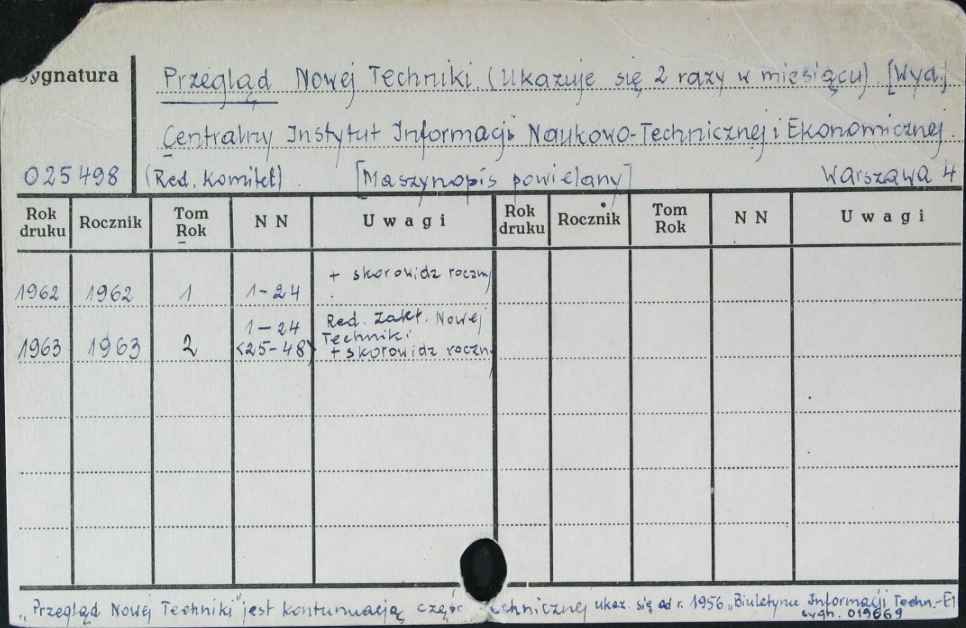 Sygnatura
Przegląd Nowej Techniki. (Ukazuje się 2 razy w miesiącu) [Wyd.]
Centralny Instytut Informacji Naukowo-Technicznej i Ekonomicznej.
025498 (Red. Komitet). [Maszynopis powielany] Warszawa 4
Rok druku Rocznik Tom Rok N N Uwagi Rok druku Rocznik Tom Rok N N Uwagi
1962 1962 1 1-24 + skorowidz roczny
1963 1963 2 1-24 <25-48> Red. Zakł. Nowej Techniki + skorowidz roczn
"Przegląd Nowej Techniki" jest kontunuacją części technicznej ukaz. się od r. 1956 "Biuletynu Informacji Techn.-E
sygn. 019669